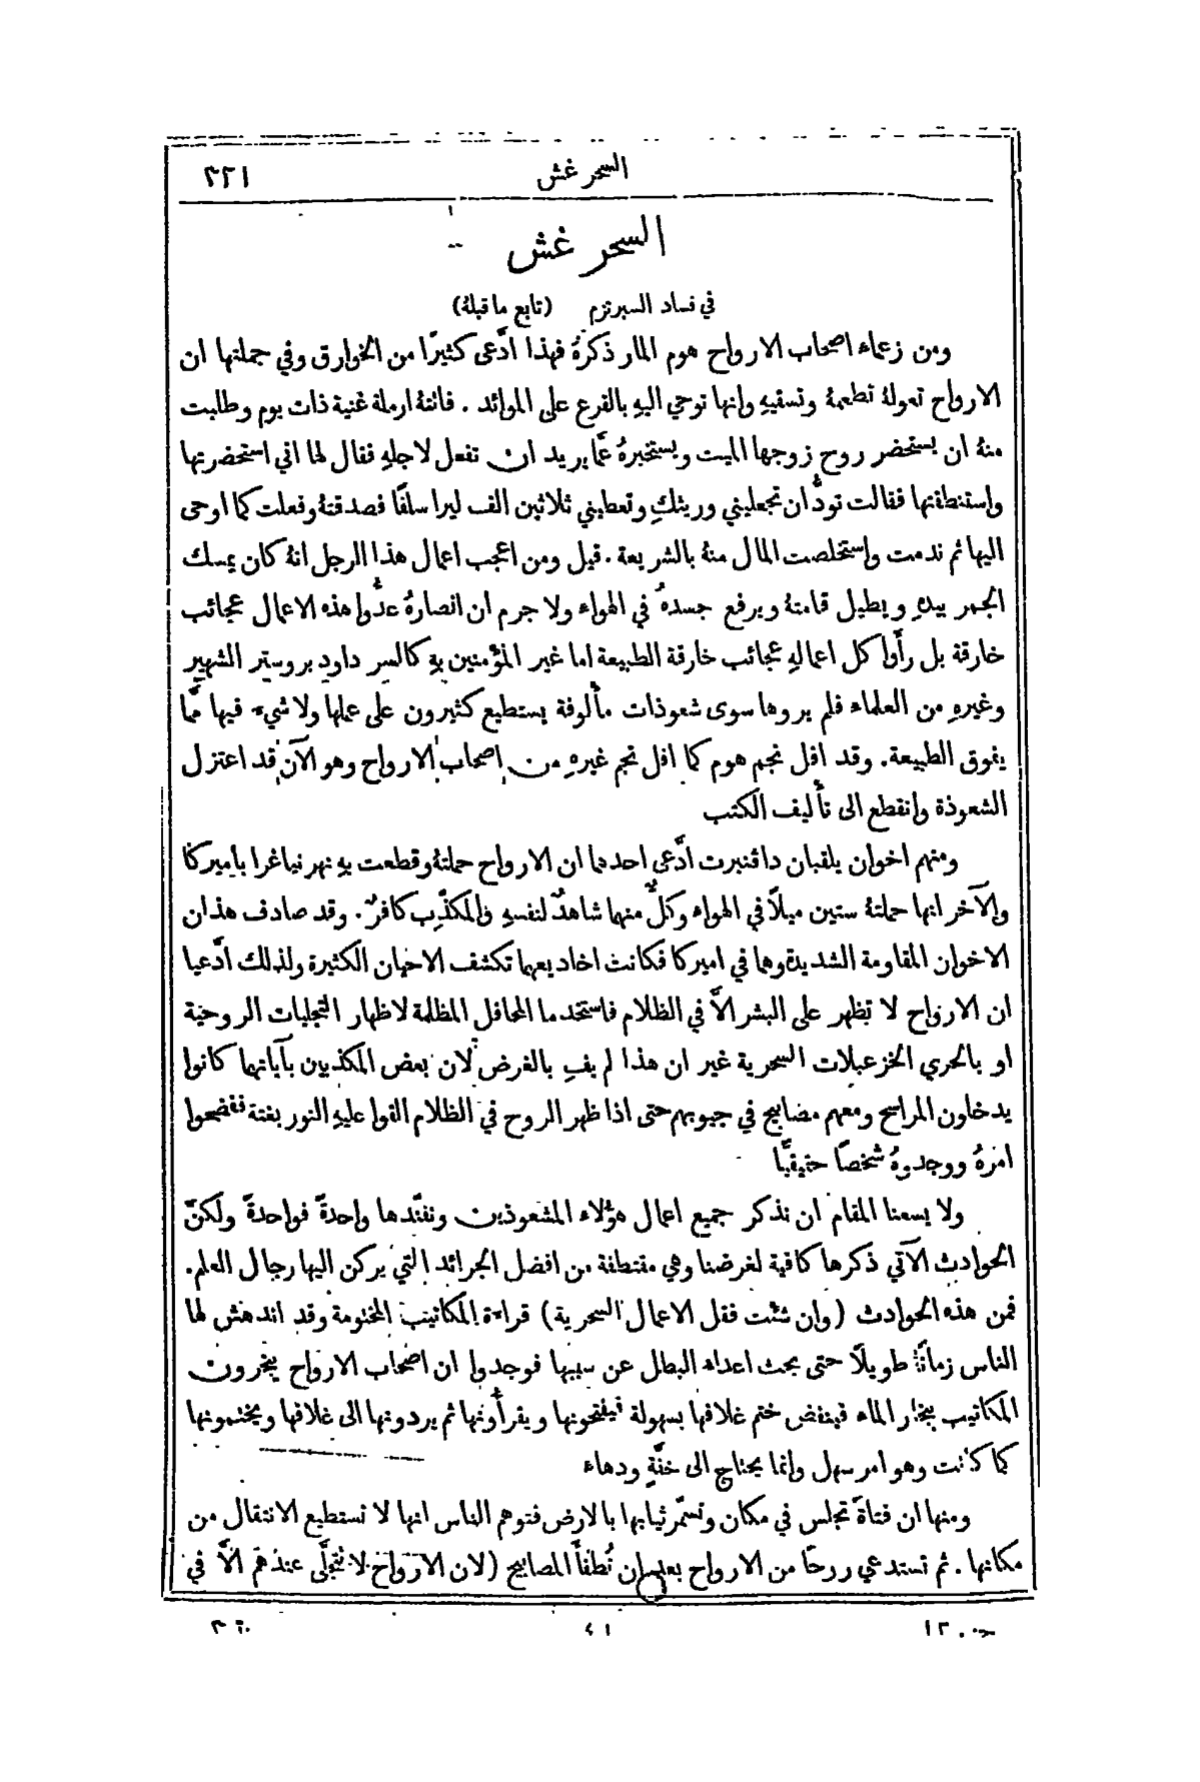 السحر غش ٣٢١
السحر غش
في فساد السبرتزم (تابع ما قبلهُ)
ومن زعماء اصحاب الارواح هوم المار ذكرهُ فهذا ادَّعى كثيرًا من الخوارق وفي جملتها ان
الارواح تعولهُ تطعمهُ وتسقيهِ وانها توحي اليهِ بالقرع على الموائد . فاتتهُ ارملة غنية ذات يوم وطلبت
منهُ ان يستحضر روح زوجها الميت ويستخبرهُ عمَّا يريد ان تفعل لاجلهِ فقال لها اني استحضرتها
واستنطقتها فقالت تودُّ ان تجعليني وريثكِ وتعطيني ثلاثين الف ليرا سلفًا فصدقتهُ وفعلت كما اوحى
اليها ثم ندمت واستخلصت المال منهُ بالشريعة . قيل ومن اعجب اعمال هذا الرجل انهُ كان يمسك
الجمر بيدهِ ويطيل قامتهُ ويرفع جسدهُ في الهواء ولا جرم ان انصارهُ عدُّوا هذه الاعمال عجائب
خارقة بل رأَوا كل اعمالهِ عجائب خارقة الطبيعة اما غير المؤمنين بهِ كالسر داود بروستر الشهير
وغيرهِ من العلماء فلم يروها سوى شعوذات مأْلوفة يستطيع كثيرون على عملها ولا شيء فيها ممَّا
يفوق الطبيعة . وقد افل نجم هوم كما افل نجم غيرهِ من اصحاب الارواح وهو الآن قد اعتزل
الشعوذة وانقطع الى تأْليف الكتب
ومنهم اخوان يلقبان دافنبرت ادَّعى احدهما ان الارواح حملتهُ وقطعت بهِ نهر نياغرا باميركا
والآخر انها حملتهُ ستين ميلاً في الهواء وكلٌّ منهما شاهدٌ لنفسهِ والمكذّب كافرٌ . وقد صادف هذان
الاخوان المقاومة الشديدة وهما في اميركا فكانت اخاديعهما تكشف الاحيان الكثيرة ولذلك ادَّعيا
ان الارواح لا تظهر على البشر الاَّ في الظلام فاستخدما المحافل المظلمة لاظهار التجليات الروحية
او بالحري الخزعبلات السحرية غير ان هذا لم يفِ بالغرض لان بعض المكذبين بآياتهما كانوا
يدخلون المراسح ومعهم مصابيح في جيوبهم حتى اذا ظهر الروح في الظلام القوا عليهِ النور بغتة ففضحوا
امرهُ ووجدوهُ شخصًا حقيقيًّا
ولا يسعنا المقام ان نذكر جميع اعمال هؤلاء المشعوذين ونفنّدها واحدةً فواحدةً ولكنَّ
الحوادث الآتي ذكرها كافية لغرضنا وهي مقتطفة من افضل الجرائد التي يركن اليها رجال العلم .
فمن هذه الحوادث (وان شئت فقل الاعمال السحرية) قراءة المكاتيب المختومة وقد اندهش لها
الناس زمانًا طويلاً حتى بحث اعداء البطل عن سببها فوجدوا ان اصحاب الارواح يبخرون
المكاتيب ببخار الماء فينفض ختم غلافها بسهولة فيفتحونها ويقرأُونها ثم يردونها الى غلافها ويختمونها
كما كانت وهو امر سهل وانما يحتاج الى خفَّةٍ ودهاء
ومنها ان فتاةً تجلس في مكان وتسمَّر ثيابها بالارض فتوهم الناس انها لا تستطيع الانتقال من
مكانها . ثم تستدعي روحًا من الارواح بعد ان تُطفأَ المصابيح (لان الارواح لا تتجلَّى عندهم الاَّ في
٤١